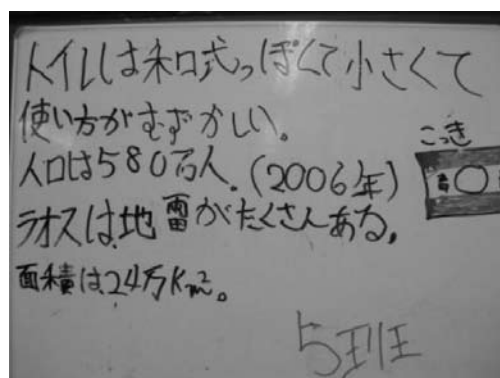 トイレは和式っぽくて小さくて
使い方がむずかしい。
こっき
人口は580万人.(2006年)
ラオスは地雷がたくさんある。
面積は24万Km²。
5班